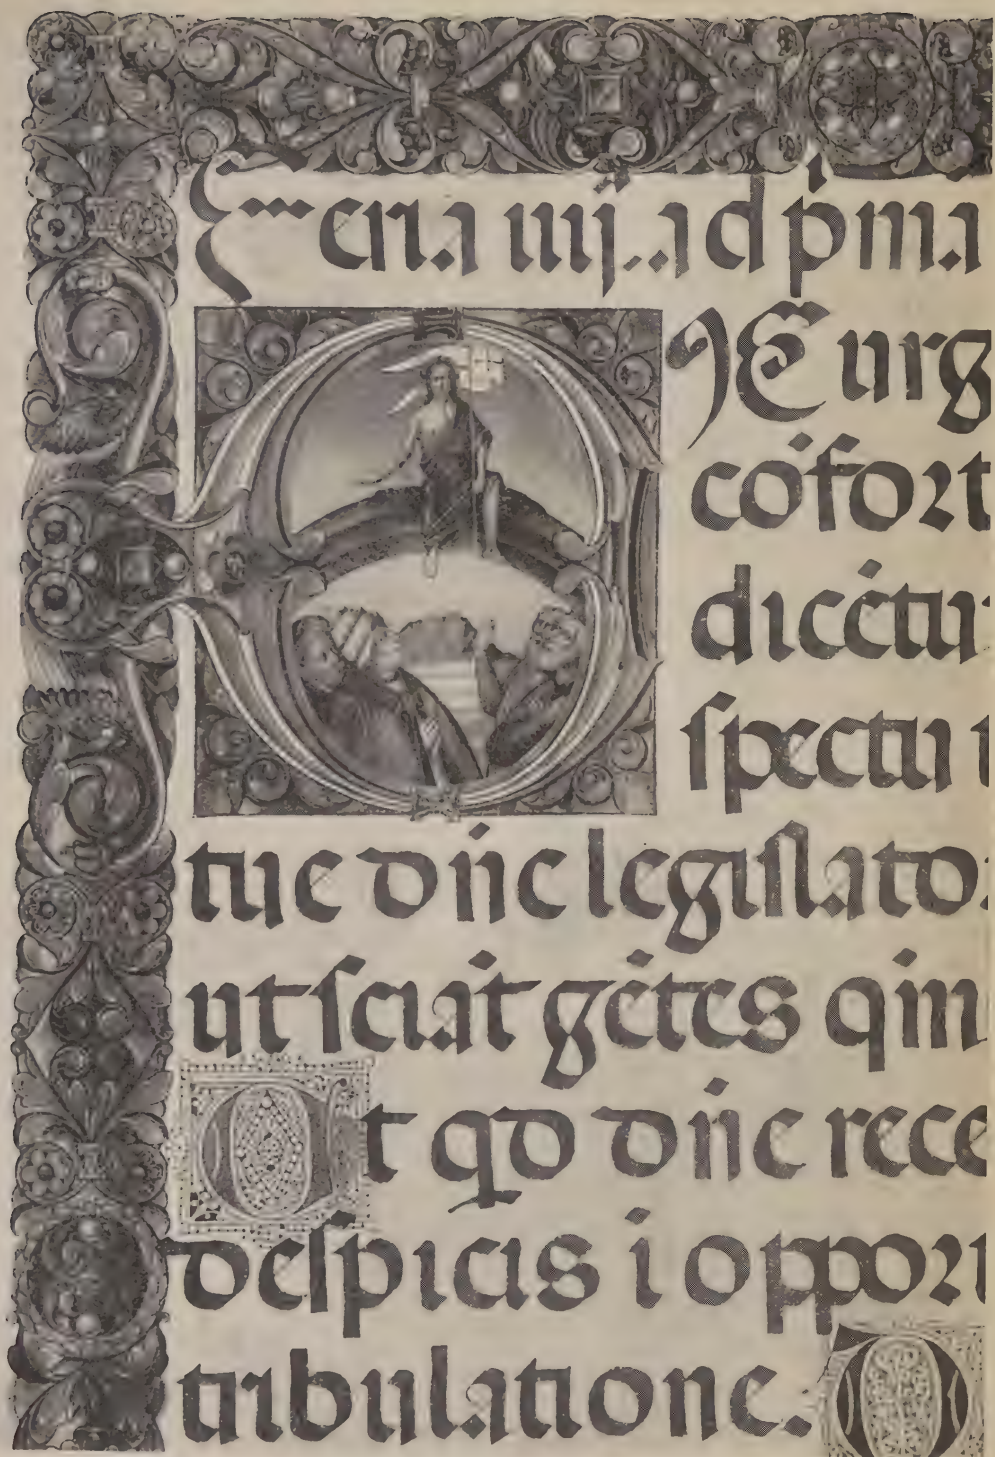 Feria iiij. ad p̄ma
EXurg
cōfort
dicētu
spectu t
tue dn̄e legislato
ut sciāt gētes qm̄
Ut qd dn̄e rece
despicis ī opport
tribulatione. D